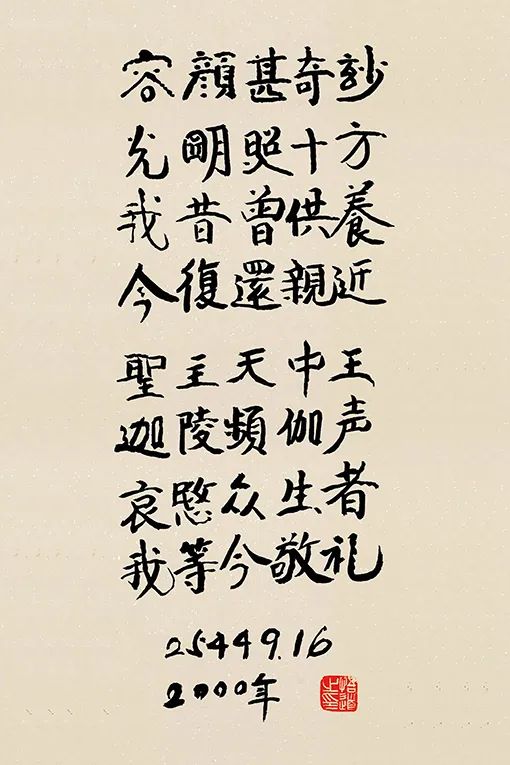 容顏甚奇妙
光明照十方
我昔曾供養
今復還親近
聖主天中王
迦陵頻伽声
哀愍众生者
我等今敬礼
25449.16
2000年